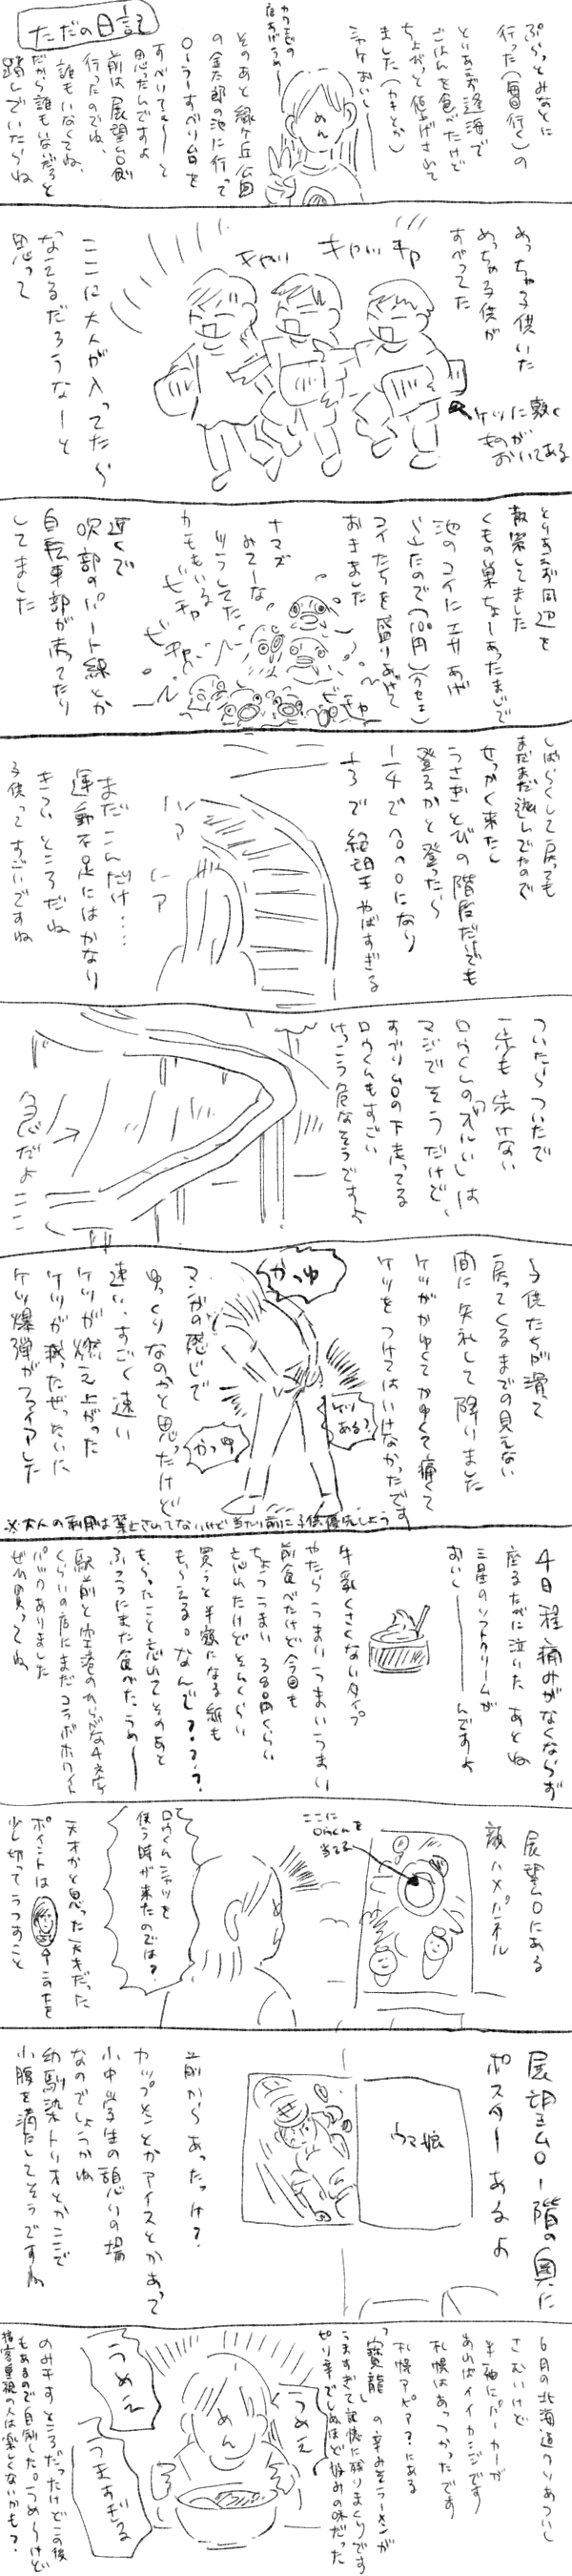 ただの日記
ぷらっとみなとに
行った(毎日行く)の
とりあえず逢海で
ごはんを食べたけど
ちょびっと値上げされて
ました(カキとか)
シャケおいしー
めん
そのあと緑ヶ丘公園
の金太郎の池に行って
ローラーすべり台を
すべりてぇ〜って
思ったんですよ
前は展望台側
行ったのでね、
誰もいなくてね、
だから誰もいないだろっと
踏んでいたらね
めっちゃ子供いた
めっちゃ子供が
すべってた
キャッ キャッ キャ
ケツに敷く
ものが
おいてある
ここに大人が入ってたら
なんてるだろうなーと
思って
とりあえず周辺を
散策してました
くもの巣ちょーあったまじで
池のコイにエサあげ
コイたちを盛りあげて
おきました
ナマズ
みてーな
カモもいる
ビチャ
ビチャ
ビチャ
遠くで
吹部のパート練とか
自転車部が走ってたり
してました
しばらくして戻っても
まだまだ遊んでたので
せっかく来たし
うさぎとびの階段だけでも
登るかと登ったら
1/4でへろへろになり
1/3で絶望 やばすぎる
ハァ
ハァ
まだこんだけ‥‥
運動不足にはかなり
きついところだね
子供ってすごいですね
ついたらついたで
一歩も歩けない
ロウくんの「ズルい」は
マジでそうだけど、
すべり台の下走ってる
ロウくんもすごい
けっこう危なそうですよ
急だよここ
子供たちが滑って
戻ってくるまでの見えない
間に失礼して降りました
ケツがかゆくてかゆくて痛くて
ケツをつけてはいけなかったです
かっゆ
ケツ
ある?
かっゆ
マンガの感じで
ゆっくりなのかと思ったけど
速い、すごく速い
ケツが燃え上がった
ケツが減ったぜったいに
ケツ爆弾がファイアした
※大人の利用は禁止されてないけど当たり前に子供優先しよう
4日程痛みがなくならず
座るたびに泣いた あとね
三星のソフトクリームが
おいしーーーんですよ
牛乳くさくないタイプ
やたらうつまいうつまいうつまい
前食べたけど今回も
ちょっつうまい 380円くらい
忘れたけどそんくらい
買うと半額になる紙も
もらえる。なんで???
もらったこと忘れてそのあと
ふつうにまた食べた。うめ〜
くらいの店にまだコラボホワイト
パックありました
ぜひ買ってね
展望台にある
顔ハメパネル
ここに
ロウくんを
当てる
ロウくんシャツを
使う時が来たのでは?
天才かと思った天才だった
ポイントは
このへんを
少し切ってうつすこと
展望台1階の奥に
ポスターあるよ
ウマ娘
前からあったっけ?
カップメンとかアイスとかあって
小中学生の憩いの場
なのでしょうかね
幼馴染トリオとかここで
小腹を満たしてそうですね
6月の北海道クソあついし
さむいけど
半袖にパーカーが
あればイイカンジです
札幌はあっつかったです
札幌アピア?にある
「寳龍」の辛みそラーメンが
うますぎて記憶に残りまくりです
ピリ辛でしぬほど好みの味だった
うめえ
めん
うめえ
うますぎる
のみ干すところだったけどこの後
もあるので自制した。うめ〜けど
接客重視の人は楽しくないかも?